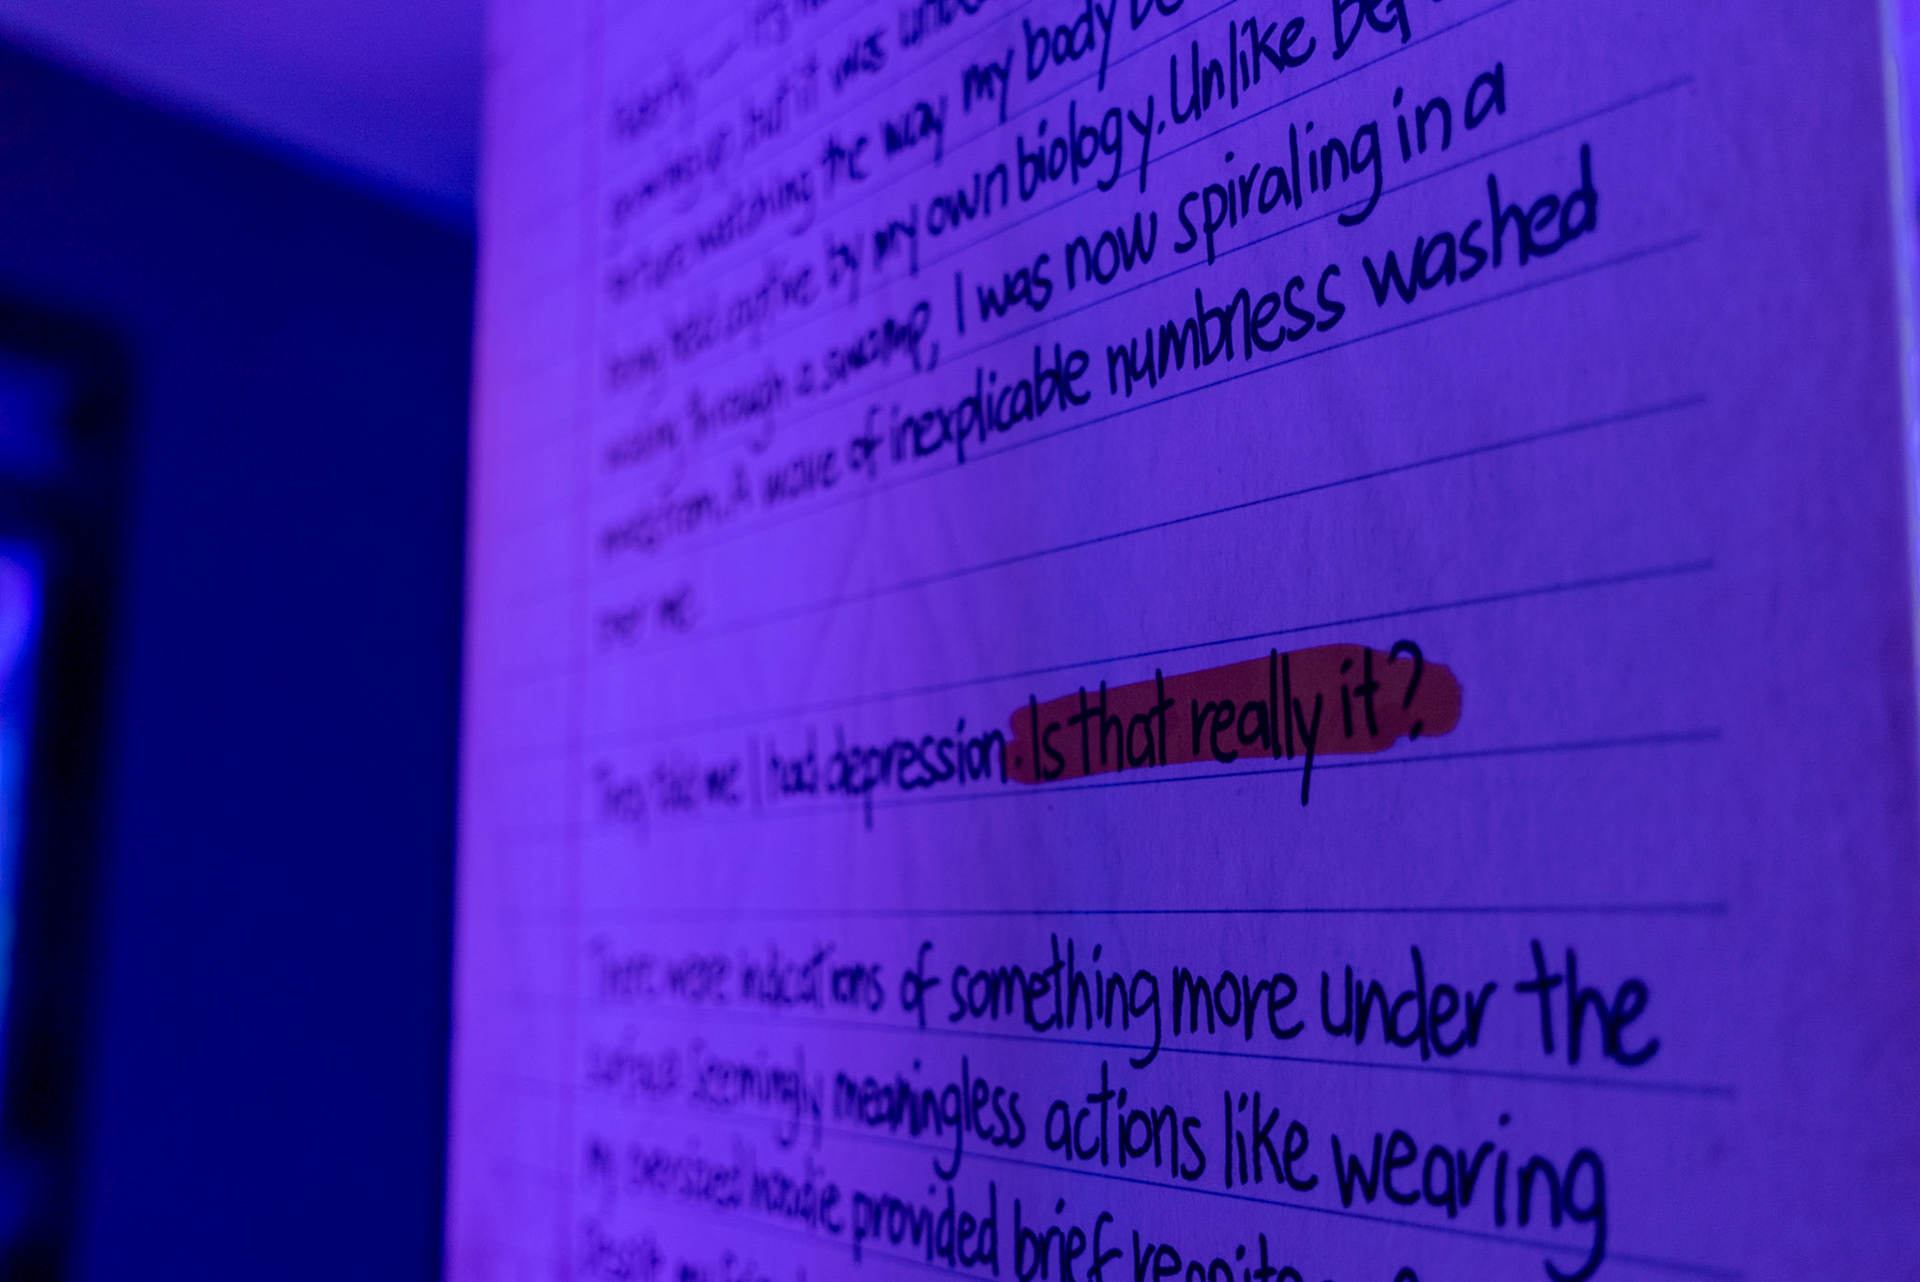 it's
but it was
watching the way my body
being held captive by my own biology. Unlike
wading through a swamp, I was now spiraling in a
maelstrom. A wave of inexplicable numbness washed
over me.
They told me I had depression. Is that really it?
There were indications of something more under the
surface. Seemingly meaningless actions like wearing
my oversized hoodie provided brief